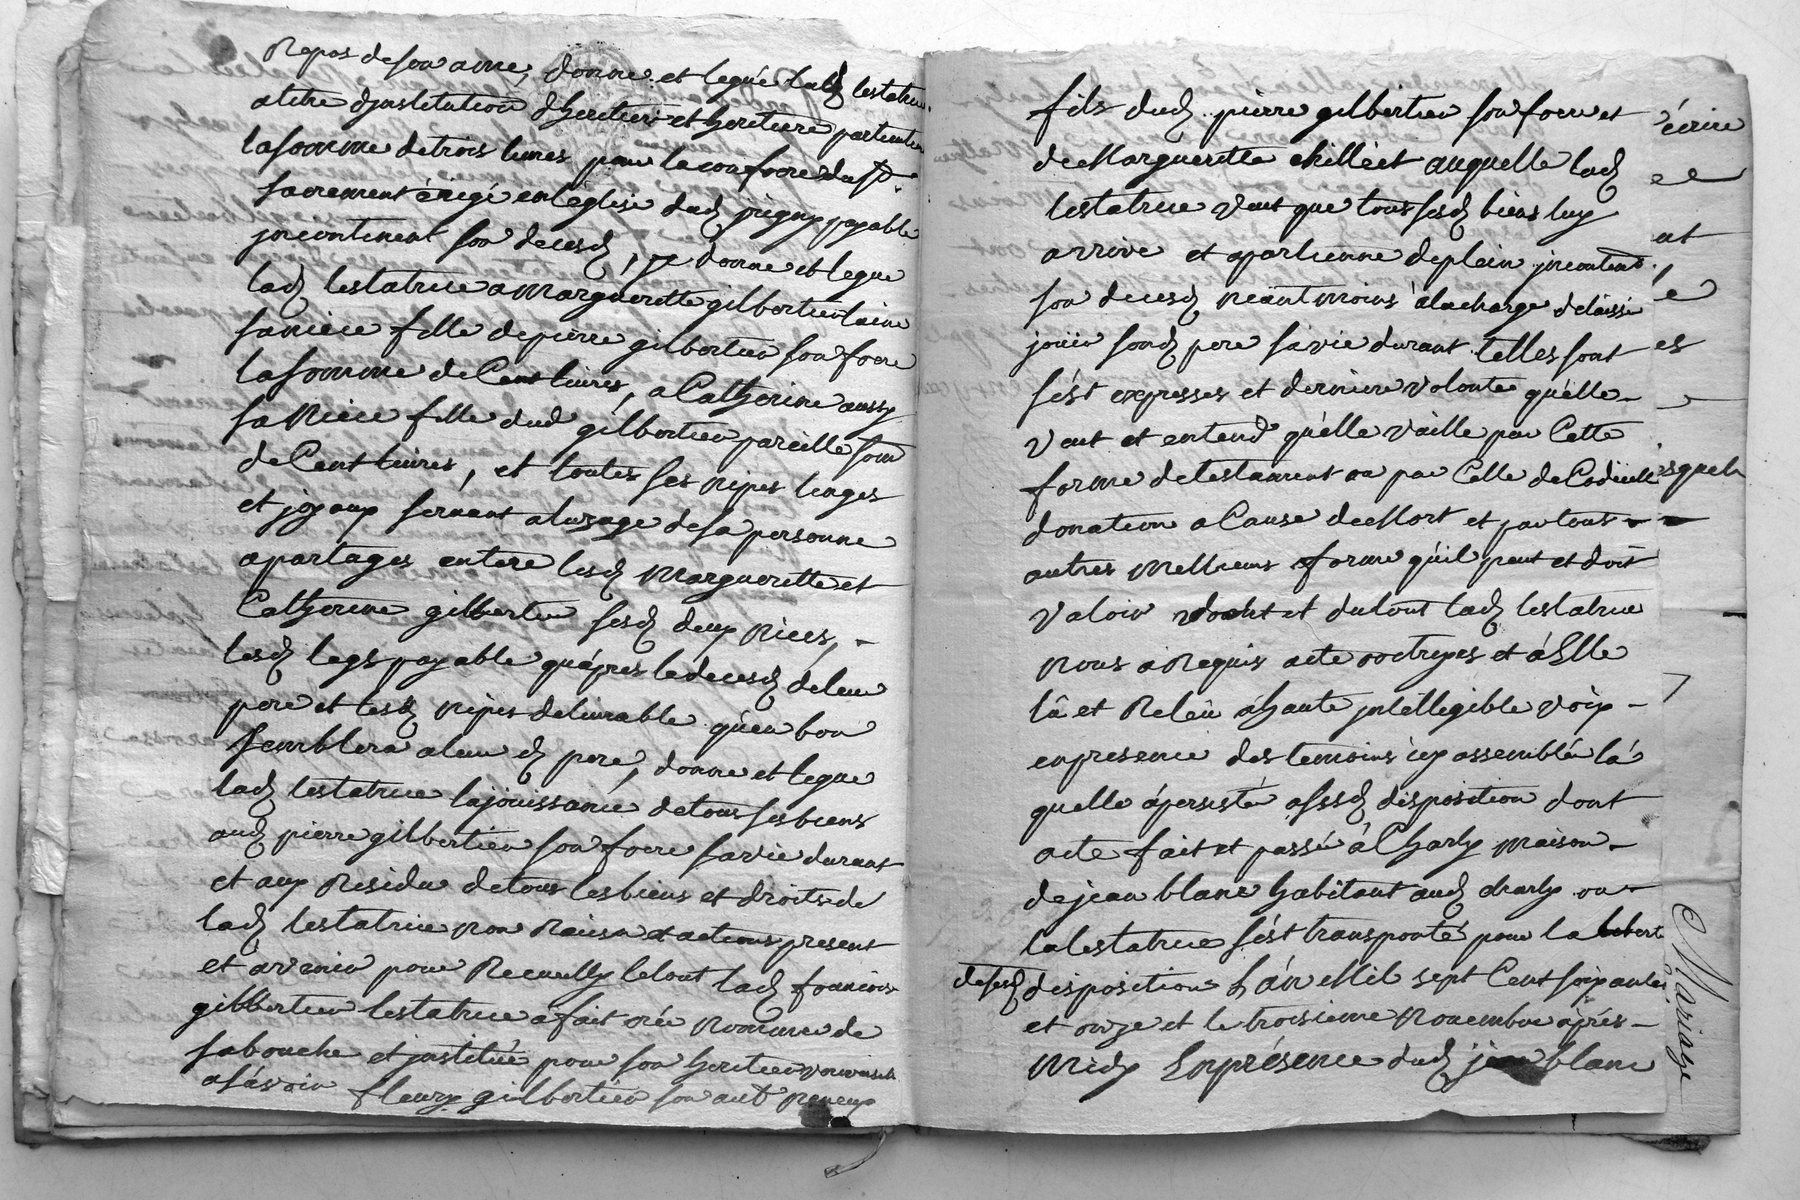 Repos de son ame, donne et legue lad testatrice
atitre djnstitution dheritiere et heritiere particuliere
la somme de trois livres pour la confrere du st
sacrement érigé en léglise dud jrigny payable
jncontinent son decesd, donne et legue
lad testatrice a margueritte gilbertier lainé
sa niece fille de pierre gilbertier son frere
la somme de Cent livres, a Catherine aussy
sa niece fille dud gilbertier pareille som
de Cent livres, et toutes ses nipes linges
et joyaux servant a lusage de sa personne
a partages entere lesd Margueritte et
Catherine gilbertier sesd deux nieces,
lesd legs payable quápres le decesd de leur
pere et lesd nipes delivrable qúen bon
semblera a leur d pere, donne et legue
lad testatrice la joüissance de tous ses biens
aud pierre gilbertier son frere sa vie durant
et aux Residu de tous les biens et droits de
lad testatrice nom Raison et actions present
et avenir pour Receuilly le tout lad francoise
gilbertier testatrice a fait créé nommé de
sa bouche et jnstitué pour son heritier universel
a sávoir fleury gilbertier son aut neneux
fils dud pierre gilbertier son frere et
de Marguerite chillet auquelle lad
testatrice veut que tous sesd biens luy
arrive et apartienne de plein jncontent
son decesd néant moins à la charge delaisse
joüir sond pere sa vie durant telles sont
sést expresses et derniere volonte quélle
veut et entend quélle vaille par Cette
forme de testament ou par Celle de Codicille
donation a Cause de Mort et par tout
autres Mellieurs forme qúil peut et doit
valoir dont et du tout lad testatrice
nous a Requis acte octroyes et à Elle
lû et Releü à haute jntellegible voix
en presence des temoins icy assemblés la
quelle á persisté a sesd disposition dont
acte fait et passé á Charly maison
de jean blanc habitant aud charly ou
la testatrice sést transporté pour la
de sesd disposition Lán Mil sept Cent soixantes
et onze et le troisieme novembre aprés
Midy En présence dud jean blanc
écrire
ee
at
e
es
esquels
Mariage